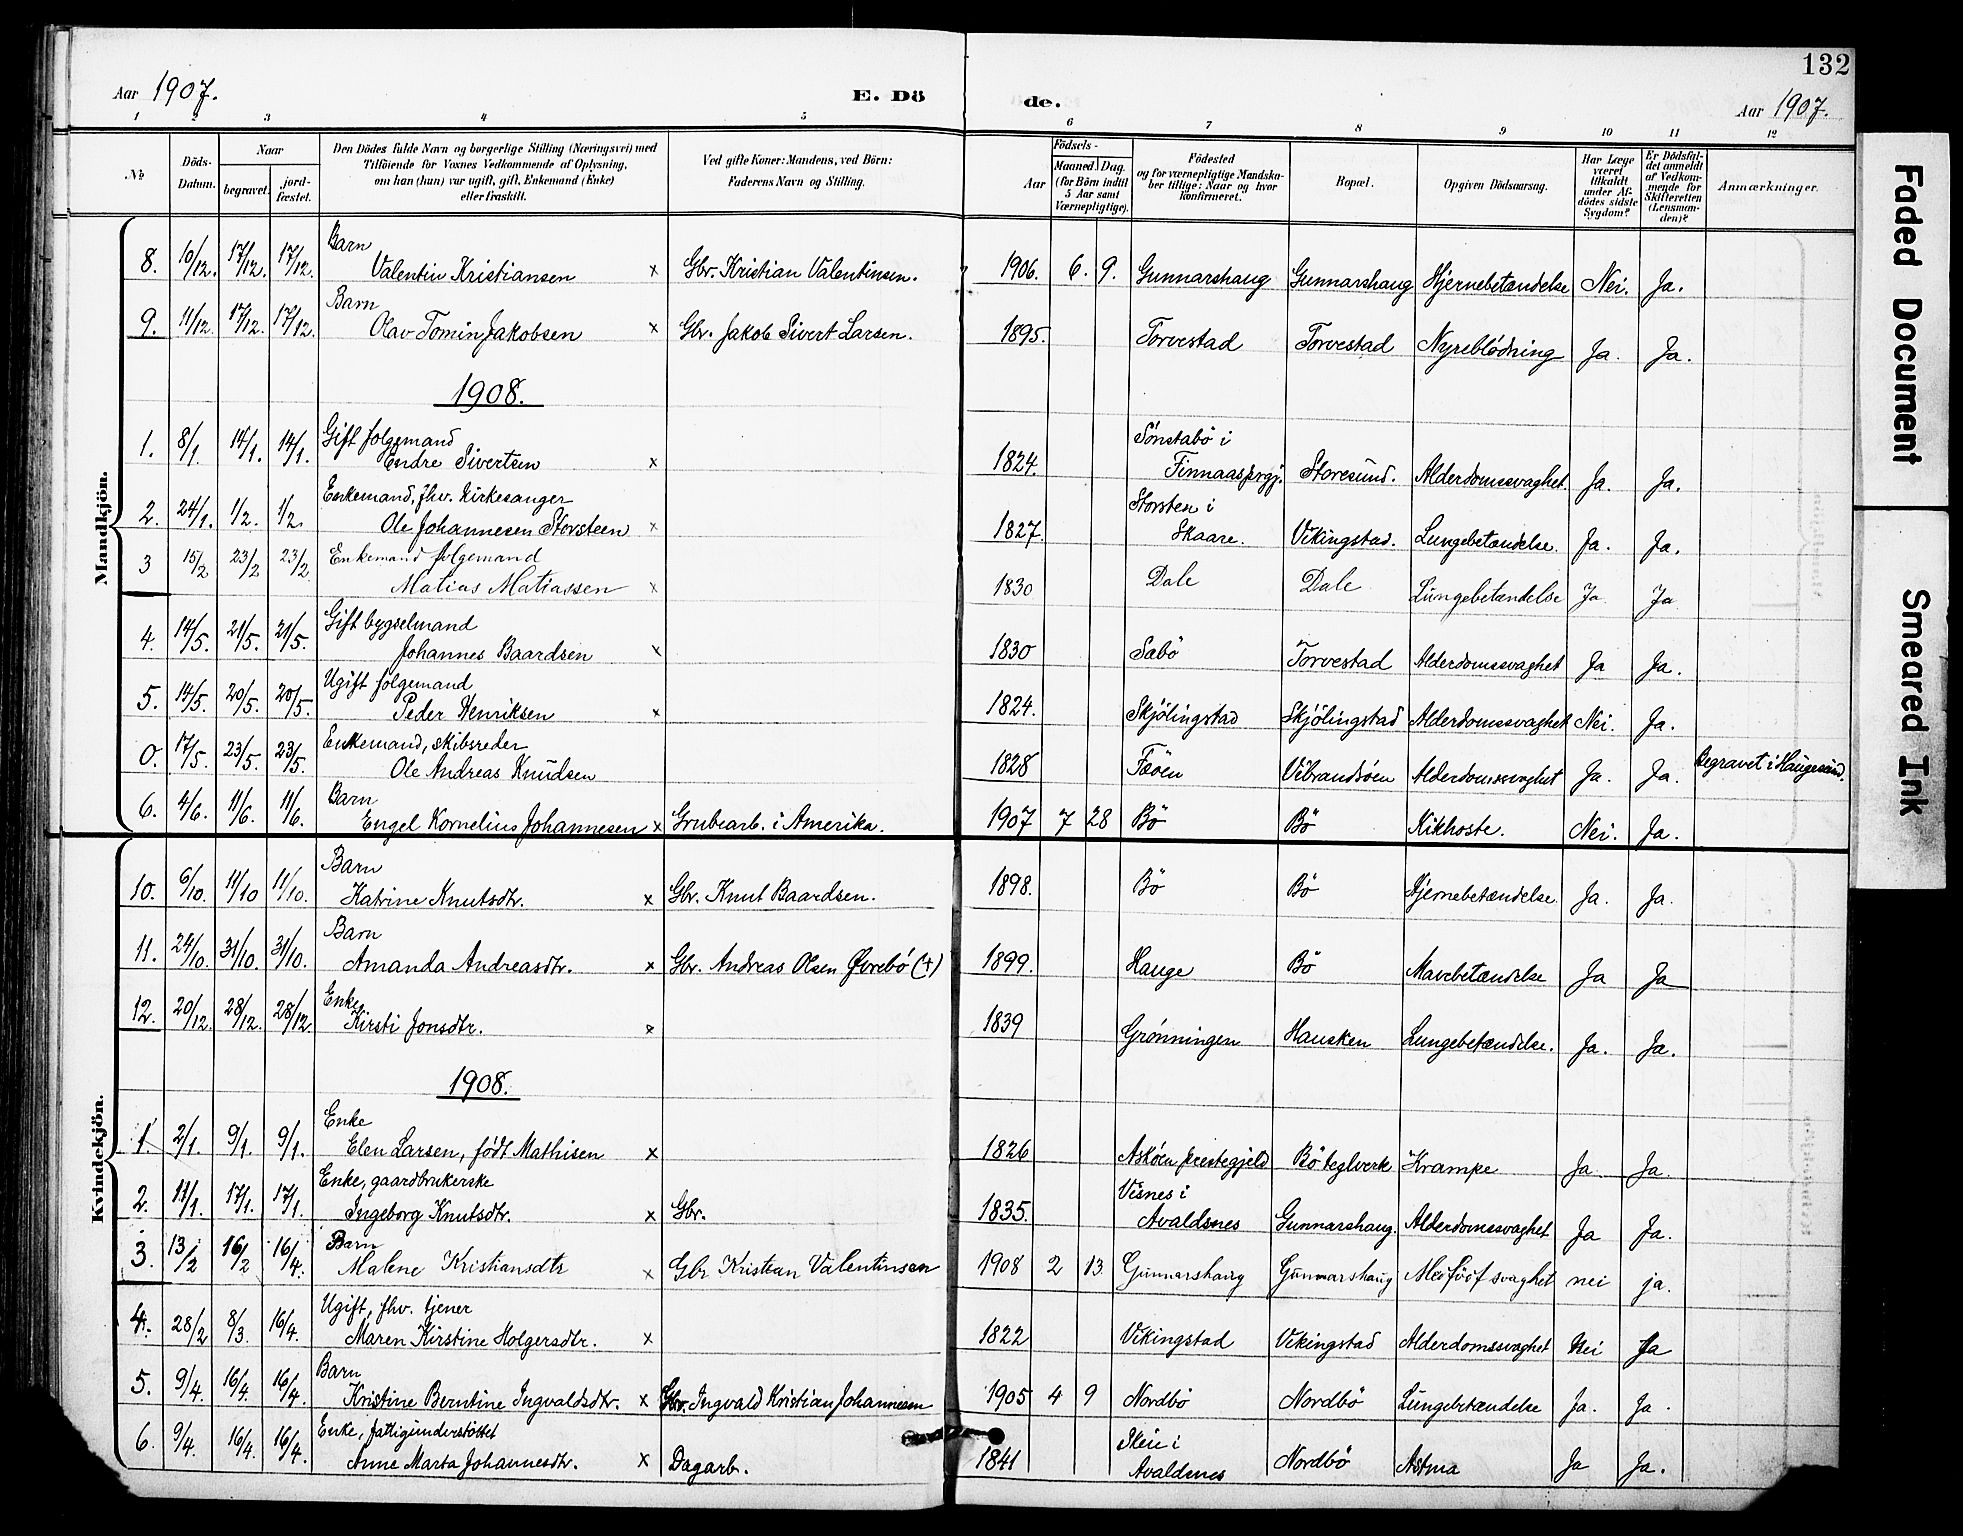 132
Aar 1907. E. Dö de. Aar 1907.
1 2 3 4 5 6 7 8 9 10 11 12
№
Döds-Datum.
Naar
begravet.
jord-fæstet.
Den Dödes fulde Navn og borgerlige Stilling (Næringsvei) med
Tilföiende for Voxnes Vedkommende af Oplysning,
om han (hun) var ugift, gift, Enkemand (Enke)
eller fraskilt.
Ved gifte Koner: Mandens, ved Börn:
Faderens Navn og Stilling.
Födsels-
Aar
Maaned. Dag.
(for Börn indtil
5 Aar samt
Værnepligtige).
Födested
og for værnepligtige Mandska-
ber tillige: Naar og hvor
konfirmeret.
Bopæl.
Opgiven Dödsaarsag.
Har Læge
været
tilkaldt
under Af-
dödes sidste
Sygdom?
Er Dödsfal-
det anmeldt
af Vedkom-
mende for
Skifteretten
(Lensman-
den)?
Anmærkninger.
Mandkjön.
Barn
8. 10/12. 17/12. 17/12. Valentin Kristiansen x Gbr. Kristian Valentinsen. 1906. 6. 9. Gunnarshaug Gunnarshaug Hjernebetændelse Nei. Ja.
Barn
9. 11/12. 17/12. 17/12. Olav Tomin Jakobsen x Gbr. Jakob Sivert Larsen. 1895. Torvestad Torvestad Nyreblödning Ja. Ja.
1908.
Gift folgemand Sönstabö i
1. 8/1. 14/1. 14/1. Endre Sivertsen x 1824. Finnaas prgj. Storesund. Alderdomssvaghet. Ja. Ja.
Enkemand, fhv. Kirkesanger Storsten i
2. 24/1. 1/2. 1/2. Ole Johannesen Storsteen x 1827. Skaare. Vikingstad. Lungebetændelse. Ja. Ja.
Enkemand folgemand
3 15/2 23/2 23/2. Matias Matiassen x 1830 Dale Dale Lungebetændelse Ja Ja
Gift bygselmand
4. 14/5. 21/5. 21/5. Johannes Baardsen x 1830 Sæbö Torvestad Alderdomssvaghet Ja Ja.
Ugift folgemand
5. 14/5. 20/5. 20/5. Peder Henriksen x 1824. Skjölingstad Skjölingstad Alderdomssvaghet Nei. Ja.
Enkemand, skibsreder
0. 17/5. 23/5. 23/5. Ole Andreas Knudsen 1828 Fæöen Vibrandsöen Alderdomssvaghet Ja. Ja. Begravet i Haugesund.
Barn
6. 4/6. 11/6. 11/6. Engel Kornelius Johannesen x Grubearb. i Amerika. 1907 7 28 Bö Bö Kikhoste. Nei. Ja.
Kvindekjön.
Barn
10. 6/10. 11/10 11/10. Katrine Knutsdtr. x Gbr. Knut Baardsen. 1898. Bö Bö Hjernebetændelse. Ja. Ja.
Barn
11. 24/10. 31/10. 31/10. Amanda Andreasdtr. x Gbr. Andreas Olsen Øvrebö (†) 1899. Hauge Bö Mavebetændelse Ja Ja
Enke
12. 20/12. 28/12. 28/12. Kirsti Jonsdtr. x 1839 Grönningen Hausken Lungebetændelse. Ja. Ja.
1908.
Enke
1. 2/1. 9/1. 9/1. Elen Larsen, födt Mathisen x 1826 Askøen prestegjeld Bö teglverk Krampe Ja. Ja.
Enke, gaardbrukerske Visnes i
2. 11/1. 17/1. 17/1. Ingeborg Knutsdtr. x Gbr. 1835. Avaldsnes Gunnarshaug. Alderdomssvaghet Ja Ja.
Barn
3. 13/2 16/2 16/4. Malene Kristiansdtr x Gbr Kristian Valentinsen 1908 2 13 Gunnarshaug Gunnarshaug svaghet nei ja.
Ugift, fhv. tjener
4. 28/2 8/3. 16/4. Maren Kirstine Holgersdtr. x 1822 Vikingstad Vikingstad Alderdomssvaghet Nei Ja
Barn
5. 9/4. 16/4. 16/4. Kristine Berntine Ingvaldsdtr. x Gbr. Ingvald Kristian Johannesen 1905 4 9 Nordbö Nordbö Lungebetændelse Ja. Ja.
Enke, fattigunderstöttet Skeie i
6. 9/4. 16/4. 16/4. Anne Marta Johannesdtr. x Dagarb. 1841 Avaldsnes Nordbö Astma Ja Ja.
Faded Document
Smeared Ink